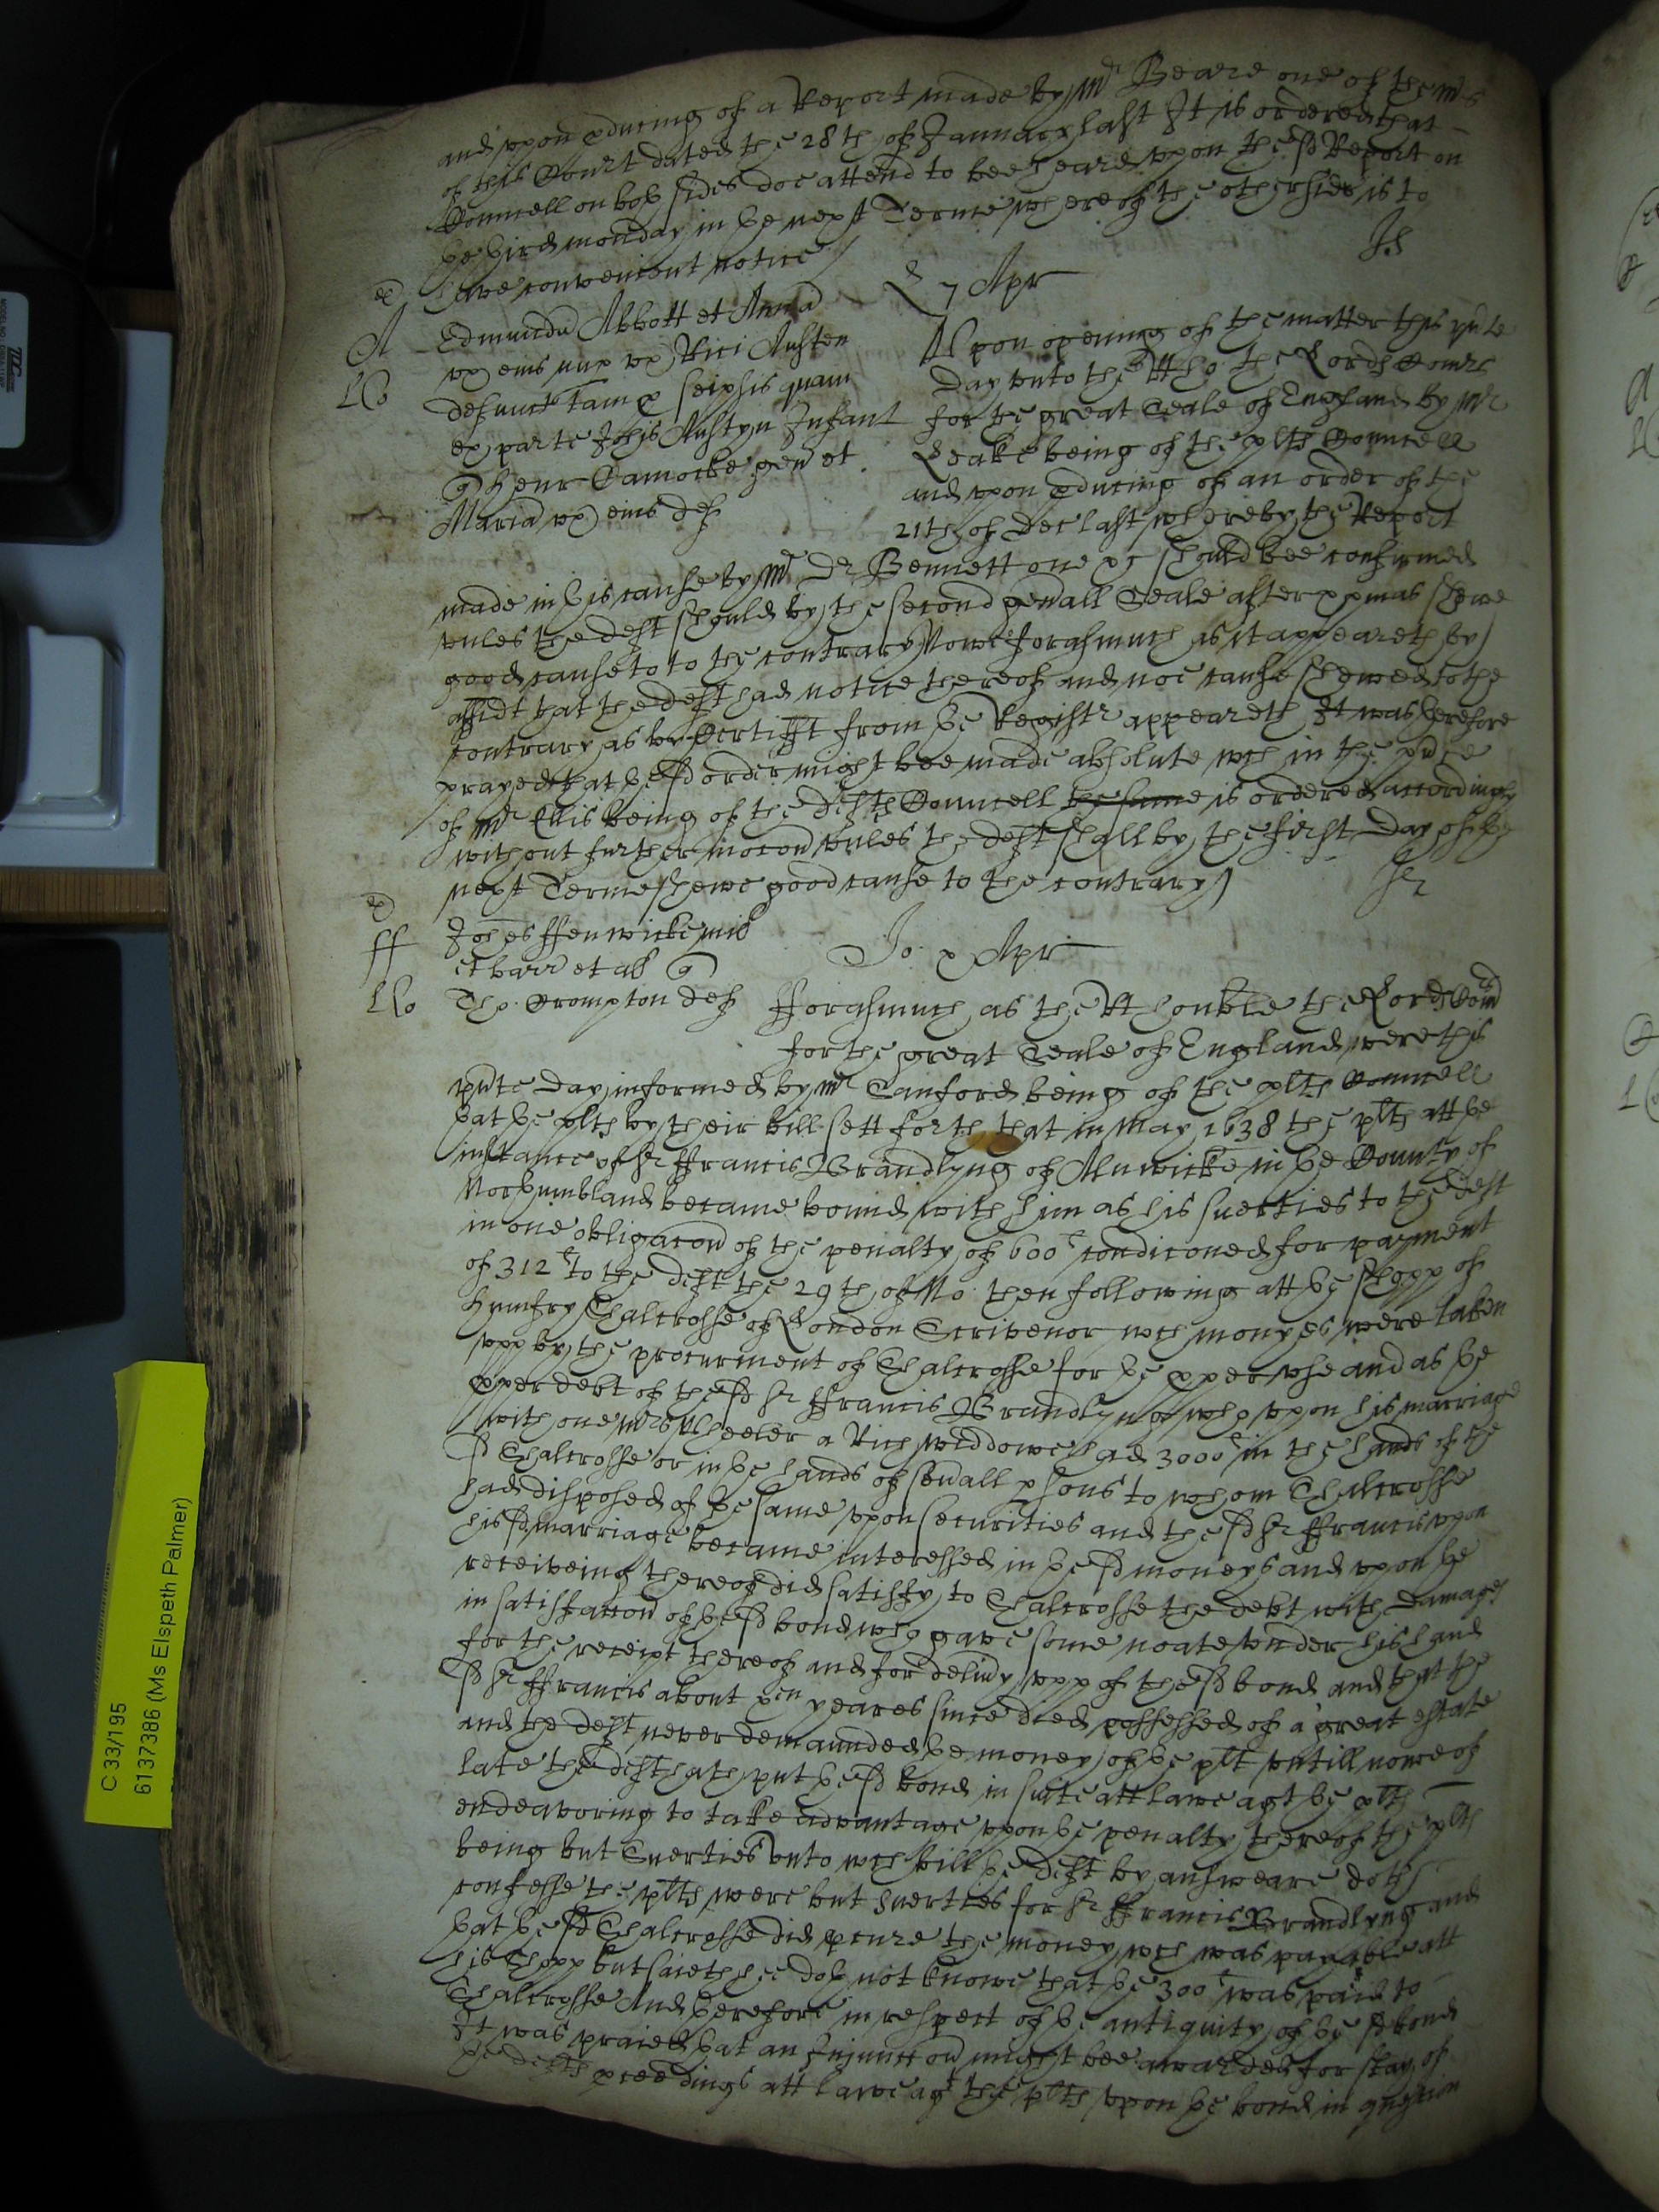 and vpon pducing of a Report made by Mr Beare one of the Mrs
of this Court dated the 28th of January last It is ordered that
Councell on both sides doe attend to bee heard vpon the sd Report on
the third monday in the next Terme whereof the other side is to
have convenient notice
L 7 Apr
A
Edmundu Abbott et Anna
vx eius nup vx Rici Austen
defunct tam p seipsis quam
ex parte Johis Austyn Infant
Henr Camocke gen et
Maria vx eius def
Vpon opening of the matter this pnte
day vnto the Rt Ho: the Lords Comrs
for the great Seale of England by Mr
Leake being of the plts Councell
and vpon pducing of an order of the
21th of Dec last whereby the Report
made in this cause by Mr Dr Bennett one &c should bee confirmed
vnles the deft should by the second genall Seale after xpmas shewe
good cause to to the contrary Nowe forasmuch as it appeareth by
affidt that the deft had notice thereof and noe cause shewed to the
contrary as by Certifft from the Registr appeareth It was therefore
prayed that the sd order might bee made absolute wch in the pnce
of Mr Ellis being of the defts Councell the same is ordered accordingly
without further mocon vnles the deft shall by the first day of the
next Terme shewe good cause to the contrary
ff
Johes ffenwicke mil
et barr et al q
Tho. Crompton def
Jo x Apr
fforasmuch as the Rt honble the Lords Com
for the great Seale of England were this
pnte day informed by Mr Sanford being of the plts Councell
that the plts by their bill sett forth that in May 1638 the plts att the
instance of Sr ffrancis Brandlyng of Alnwicke in the County of
Northumbland became bound with him as his suerties to the deft
in one obligacon of the penalty of 600l condiconed for payment
of 312l to the deft the 29th of No then following att the shopp of
Humfry Shalcrosse of London Scrivenor wch monyes were taken
vpp by the procurment of Shalcrosse for the pper vse and as the
pper debt of the sd Sr ffrancis Brandlynge who vpon his marriage
with one Mrs Wheeler a Rich widdowe had 3000l in the hands of the
sd Shalcrosse or in the hands of sevall psons to whom Shalcrosse
had disposed of the same vpon securities and the sd Sr ffrancis vpon
his sd marriage became interessed in the sd moneys and vpon the
receiveing thereof did satisfy to Shalcrosse the debt with damages
in satisfaccon of the sd bond who gave some noate vnder his hand
for the receipt thereof and for delivy vpp of the sd bond and that the
sd Sr ffrancis about ten yeares since died possessed of a great estate
and the deft never demaunded the money of the plt vntill nowe of
late the deft hath put the sd bond in suite att lawe agt the plts
endeavoring to take advantage vpon the penalty thereof the plts
being but Suerties vnto wch bill the deft by answeare doth
confesse the plts were but suerties for Sr ffrancis Brandlyng and
that the sd Shalcrosse did pcure the money wch was payable att
his Shopp but saieth hee doth not knowe that the 300l was paid to
Shalcrosse And therefore in respect of the antiquity of the sd bond
It was praied that an Injunccon might bee awarded for stay of
the defts pceedings att lawe agt the plts vpon the bond in question
C 33/195
6137386 (Ms Elspeth Palmer)